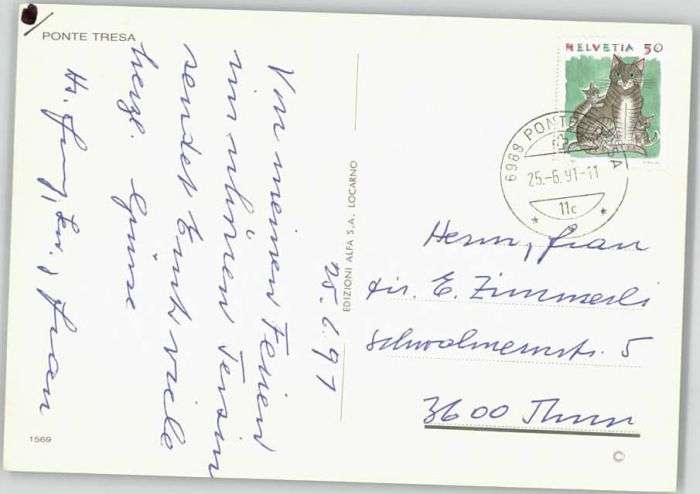 PONTE TRESA
HELVETIA 50
6988 PONTE TRESA
25.-6.91-11
11c
25.6.91
Von meinen Ferien
im schönen Tessin
sendet Euch viele
herzl. Grüsse
Hs. und Frau
EDIZIONI ALFA S.A. LOCARNO
Herrn, Frau
E. Zimmerli
Schwalmernstr. 5
3600 Thun
1569
©